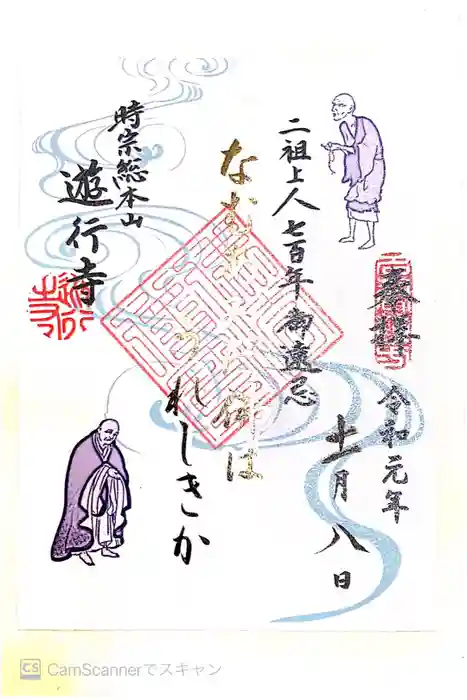 奉拝
令和元年
十一月八日
二祖上人七百年御遠忌
なむあみだ佛は
うれしきか
時宗総本山
遊行寺
CS CamScannerでスキャン